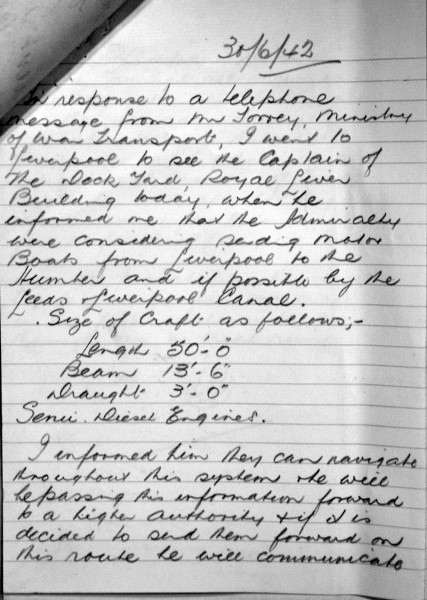 30/6/42
In response to a telephone
message from Mr Torrey, Ministry
of War Transport, I went to
Liverpool to see the Captain of
the Dock Yard, Royal Liver
Building today, when he
informed me that the Admiralty
were considering sending Motor
Boats from Liverpool to the
Humber and if possible by the
Leeds & Liverpool Canal.
Size of Craft as follows;-
Length 50'-0"
Beam 13'-6"
Draught 3'-0"
Semi Diesel Engines.
I informed him they can navigate
throughout this system & he will
be passing this information forward
to a higher authority & if it is
decided to send them forward on
this route he will communicate